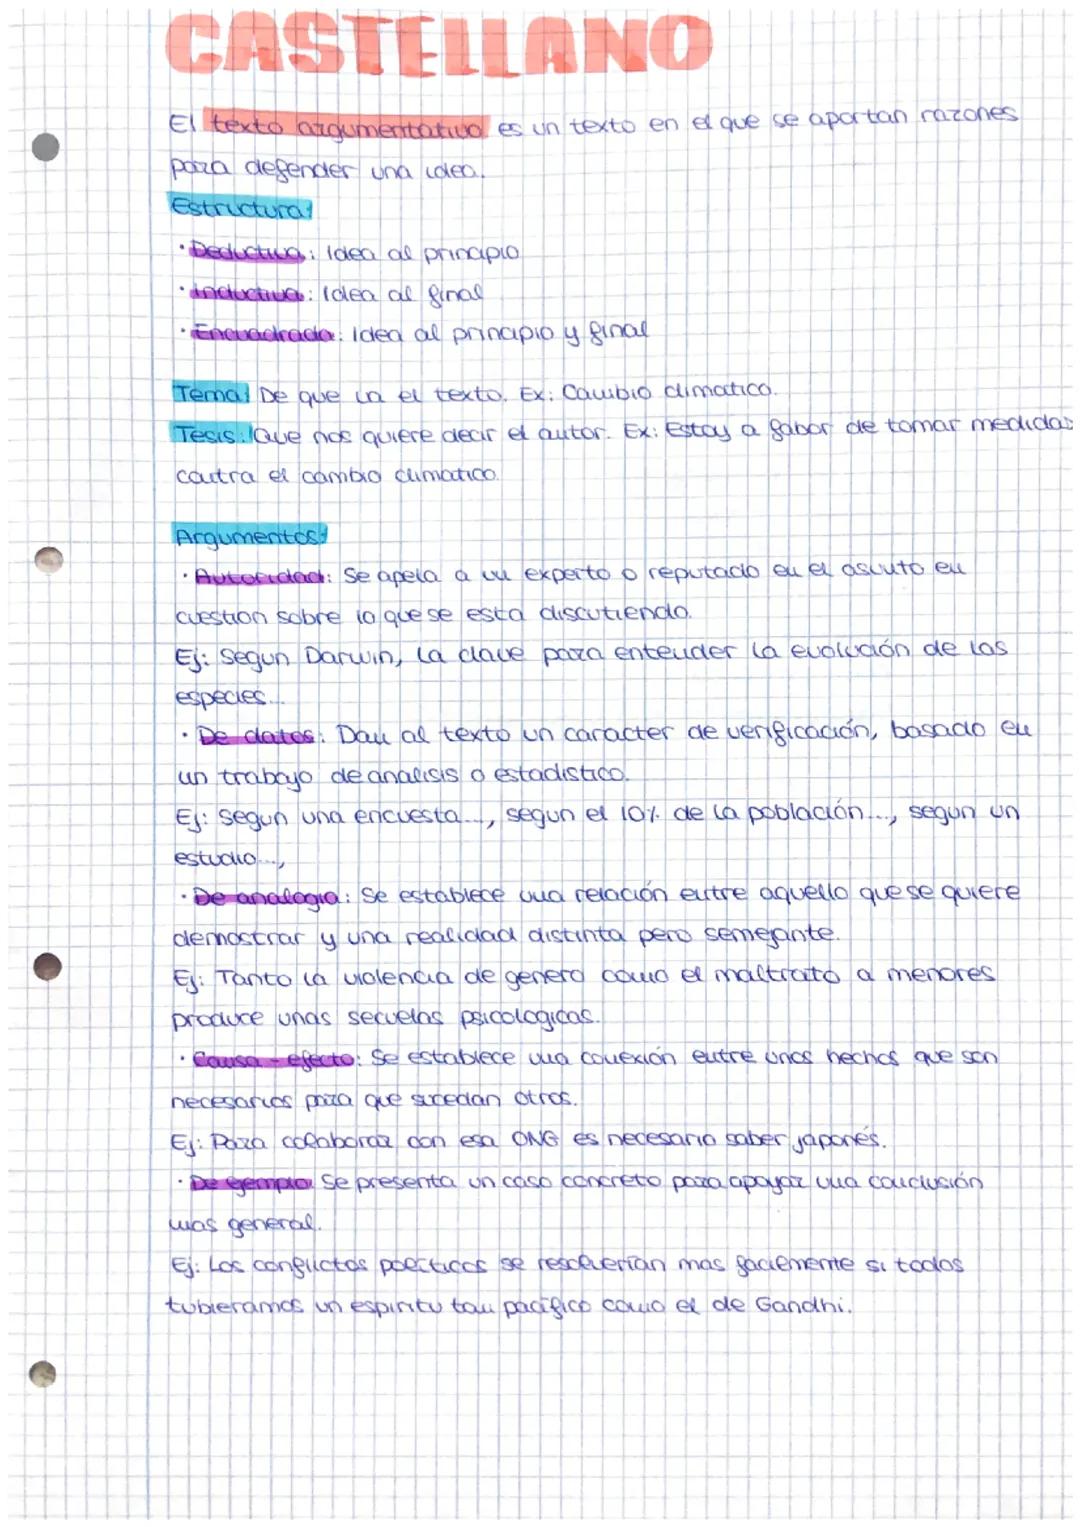 CASTELLANO
El texto argumentativo es un texto en el que se aportan razones
para defender una idea.
Estructura:
· Deductiva: Idea al principio
· Inductiva: Idea al final
· Encuadrada: Idea al principio y final
Tema: De que va el texto. Ex: Cambio climatico.
Tesis: Que nos quiere decir el autor. Ex: Estoy a fabor de tomar medidas
contra el cambio climatico.
Argumentos:
· Autoridad: Se apela a un experto o reputado en el asunto en
cuestion sobre lo que se esta discutiendo.
Ej: Segun Darwin, la clave para entender la evolución de las
especies...
· De datos: Dan al texto un caracter de verificación, basado en
un trabajo de analisis o estadistico.
Ej: Segun una encuesta..., segun el 10% de la población..., segun un
estudio...,
· De analogia: Se establece una relación entre aquello que se quiere
demostrar y una realidad distinta pero semejante.
Ej: Tanto la violencia de genero como el maltrato a menores
produce unas secuelas psicologicas.
· Causa - efecto: Se establece una conexión entre unos hechos que son
necesarios para que sucedan otros.
Ej: Para colaborar con esa ONG es necesario saber japonés.
· De ejemplo: Se presenta un caso concreto para apoyar una conclusión
mas general.
Ej: Los conflictos politicos se resolverian mas facilmente si todos
tubieramos un espiritu tan pacífico como el de Gandhi.